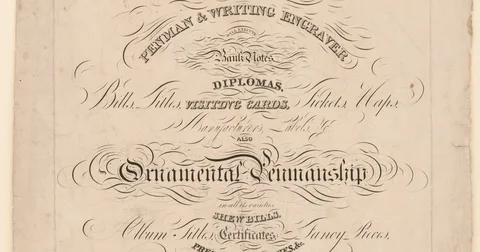 PENMAN & WRITING ENGRAVER
Bank Notes
DIPLOMAS,
Bills, Titles, VISITING CARDS, Tickets, Maps,
Manufacturers, Labels, &
ALSO
Ornamental Penmanship
in all the varieties
SHEW BILLS,
Album Titles, Certificates, Fancy Pieces,